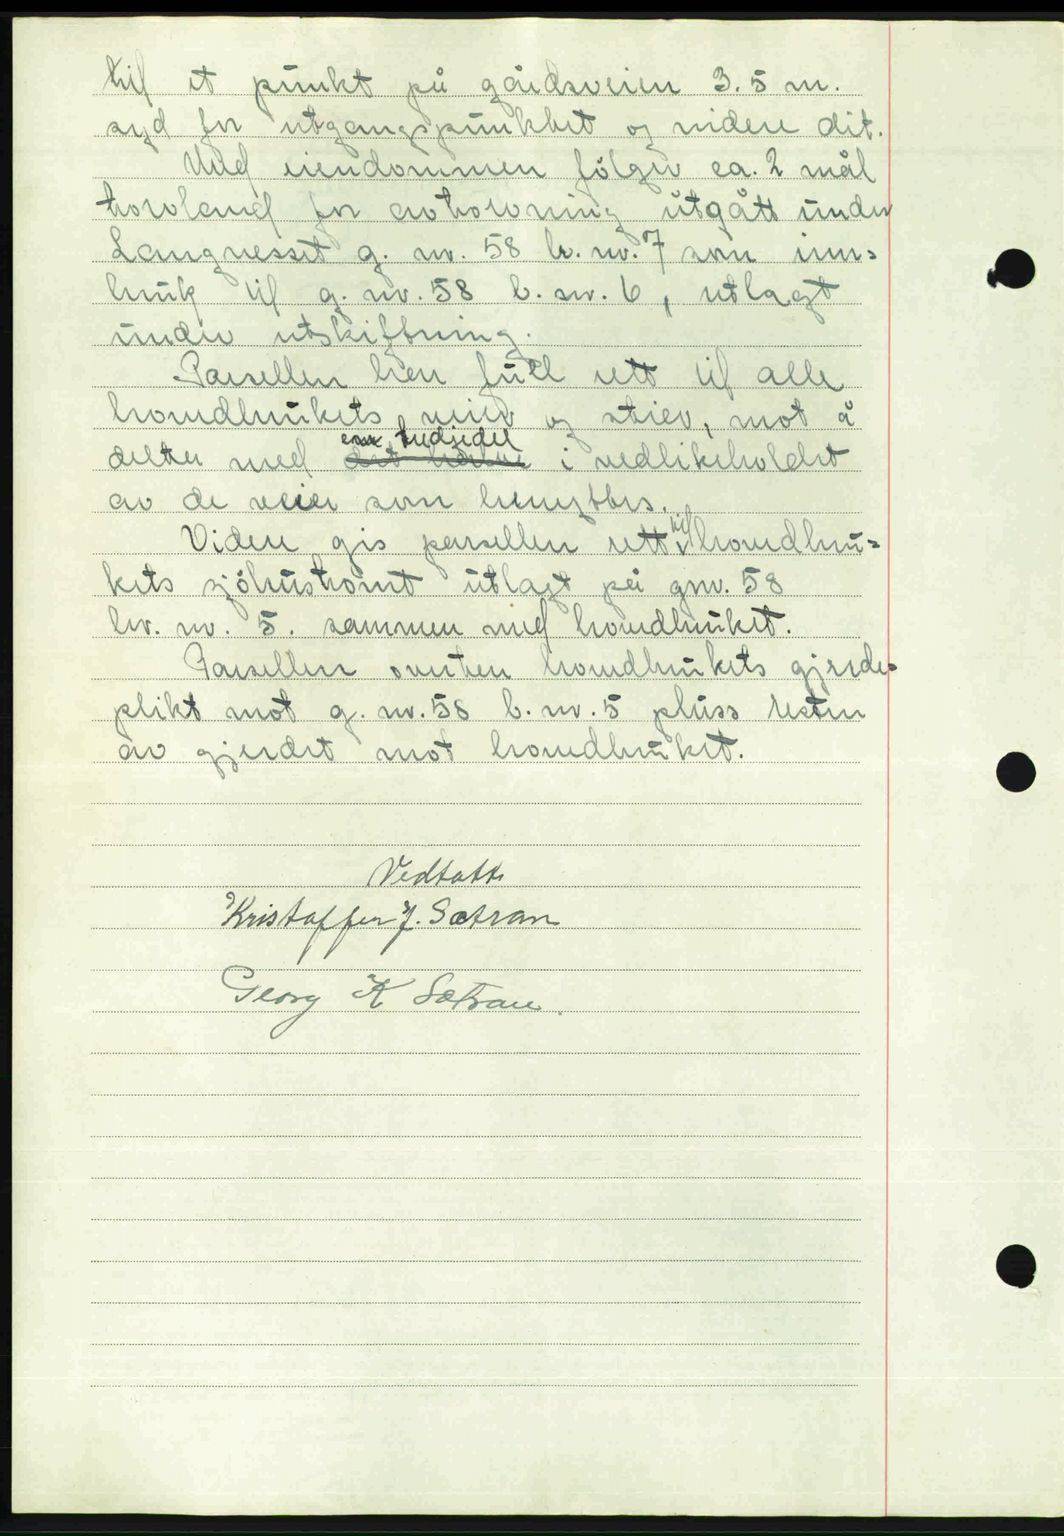 til et punkt på gårdsveien 3.5 m.
syd for utgangspunktet og videre dit.
Med eiendommen følger ca. 2 mål
torvland for avtorvning utgått under
Langnesset g. nr. 58 br. nr. 7 som inn=
bruk til g. nr. 58 b. nr. 6, utlagt
under utskiftning.
Parsellen har full rett til alle
hovedbrukets veier og stier, mot å
delta med en tredjedel i vedlikeholdet
av de veier som benyttes.
Videre gis parsellen rett til hovedbru=
kets sjøhustomt utlagt på gnr. 58
br. nr. 5. sammen med hovedbruket.
Parsellen overtar hovedbrukets gjerde=
plikt mot g. nr. 58 b. nr. 5 pluss resten
av gjerdet mot hovedbruket.
Vedtatt
Kristoffer J. Sætran
Georg K Sætran.